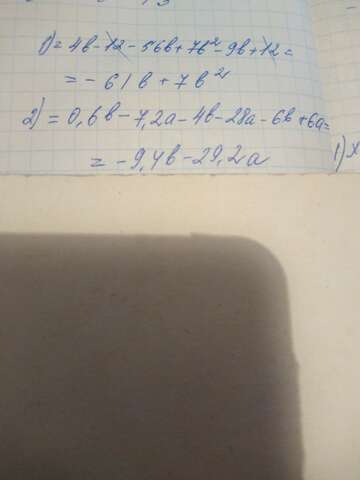 1) = 4в - 12 - 56в + 7в² - 9в + 12 =
= - 61в + 7в²
2) = 0,6в - 7,2а - 4в - 28а - 6в + 6а =
= - 9,4в - 29,2а
1) х